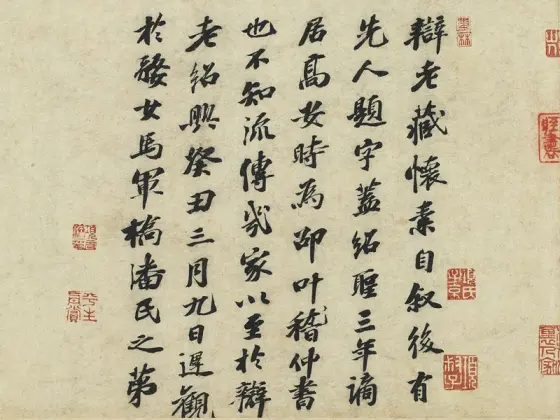 辯老藏懷素自叙後有
先人題字蓋紹聖三年謫
居高安時為邵叶稽仲書
也不知流傳幾家以至於辯
老紹興癸丑三月九日遲觀
於婺女馬軍橋潘氏之第
項氏子京
平生真賞